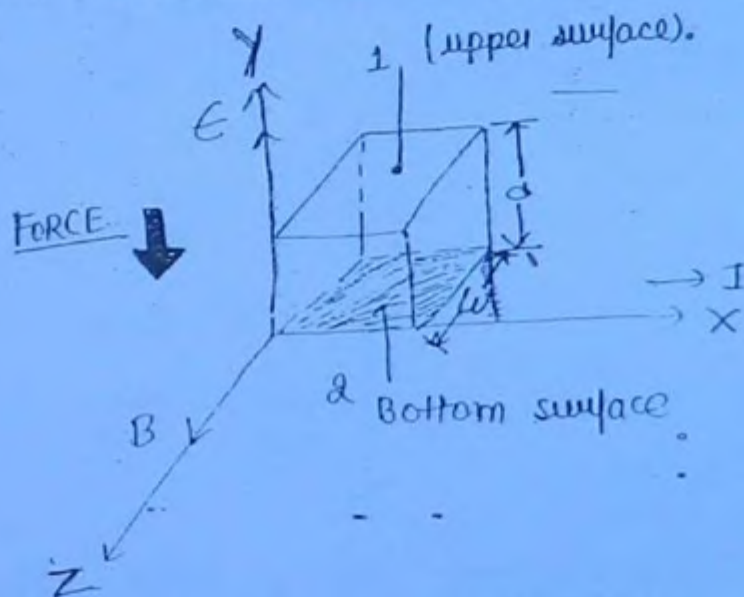 Y
1 (upper surface).
ε
FORCE
d
w
→ I
X
2 Bottom surface
B
Z